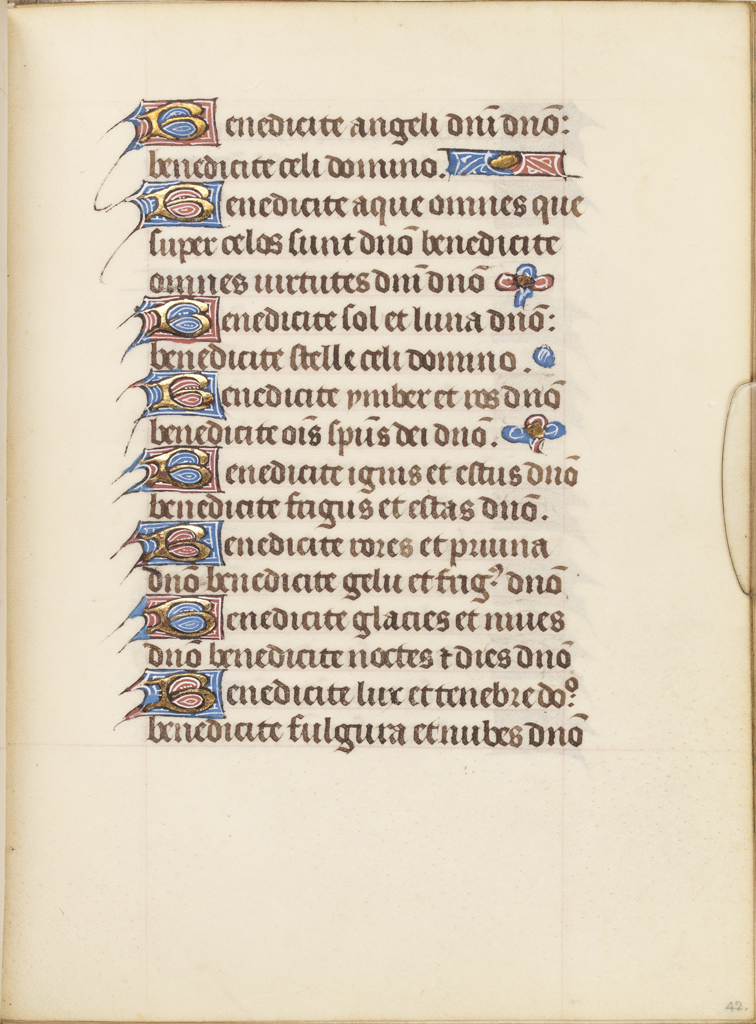 Benedicite angeli dnī dnō:
benedicite celi domino.
Benedicite aque omnes que
super celos sunt dnō benedicite
omnes uirtutes dnī dnō
Benedicite sol et luna dnō:
benedicite stelle celi domino.
Benedicite ymber et ros dnō
benedicite oīs spūs dei dnō.
Benedicite ignis et estus dnō
benedicite frigus et estas dnō.
Benedicite rores et pruina
dnō benedicite gelu et frigꝰ dnō
Benedicite glacies et niues
dnō benedicite noctes ⁊ dies dnō
Benedicite lux et tenebre doꝰ
benedicite fulgura et nubes dnō
42.